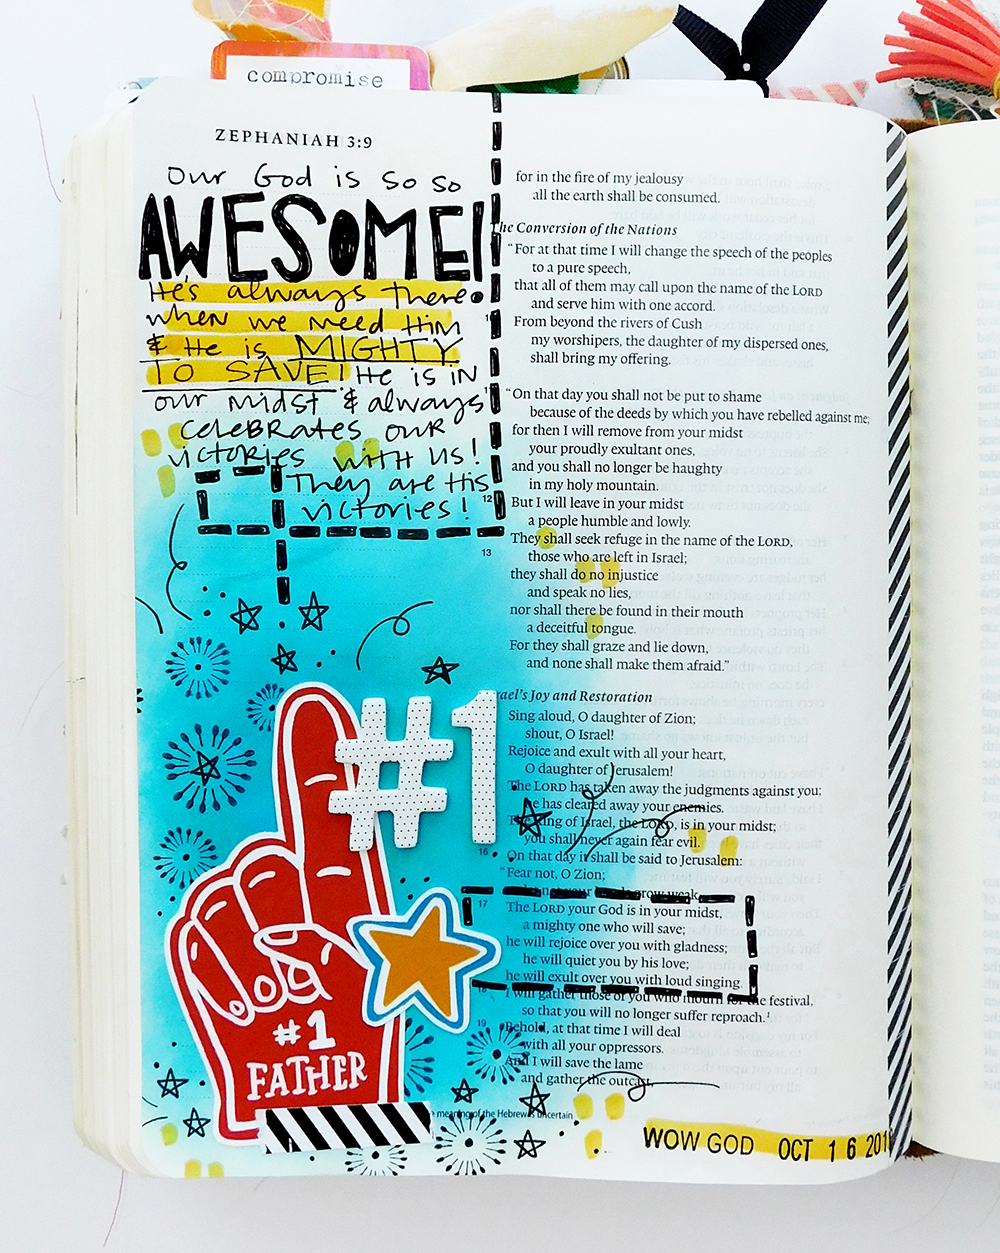 compromise
ZEPHANIAH 3:9
Our God is so so
AWESOME!
He's always there
when we need Him
& He is MIGHTY
TO SAVE! He is in
our midst & always
celebrates our
victories with us!
They are His
victories!
#1
#1
FATHER
for in the fire of my jealousy
all the earth shall be consumed.
The Conversion of the Nations
“For at that time I will change the speech of the peoples
to a pure speech,
that all of them may call upon the name of the LORD
and serve him with one accord.
From beyond the rivers of Cush
my worshipers, the daughter of my dispersed ones,
shall bring my offering.
“On that day you shall not be put to shame
because of the deeds by which you have rebelled against me;
for then I will remove from your midst
your proudly exultant ones,
and you shall no longer be haughty
in my holy mountain.
12 But I will leave in your midst
a people humble and lowly.
They shall seek refuge in the name of the LORD,
13 those who are left in Israel;
they shall do no injustice
and speak no lies,
nor shall there be found in their mouth
a deceitful tongue.
For they shall graze and lie down,
and none shall make them afraid.”
rael's Joy and Restoration
Sing aloud, O daughter of Zion;
shout, O Israel!
Rejoice and exult with all your heart,
O daughter of Jerusalem!
The LORD has taken away the judgments against you;
he has cleared away your enemies.
The King of Israel, the LORD, is in your midst;
you shall never again fear evil.
16 On that day it shall be said to Jerusalem:
“Fear not, O Zion;
let not your hands grow weak.
17 The LORD your God is in your midst,
a mighty one who will save;
he will rejoice over you with gladness;
he will quiet you by his love;
he will exult over you with loud singing.
18 I will gather those of you who mourn for the festival,
so that you will no longer suffer reproach.
19 Behold, at that time I will deal
with all your oppressors.
And I will save the lame
and gather the outcast,
meaning of the Hebrew is uncertain
WOW GOD OCT 16 201